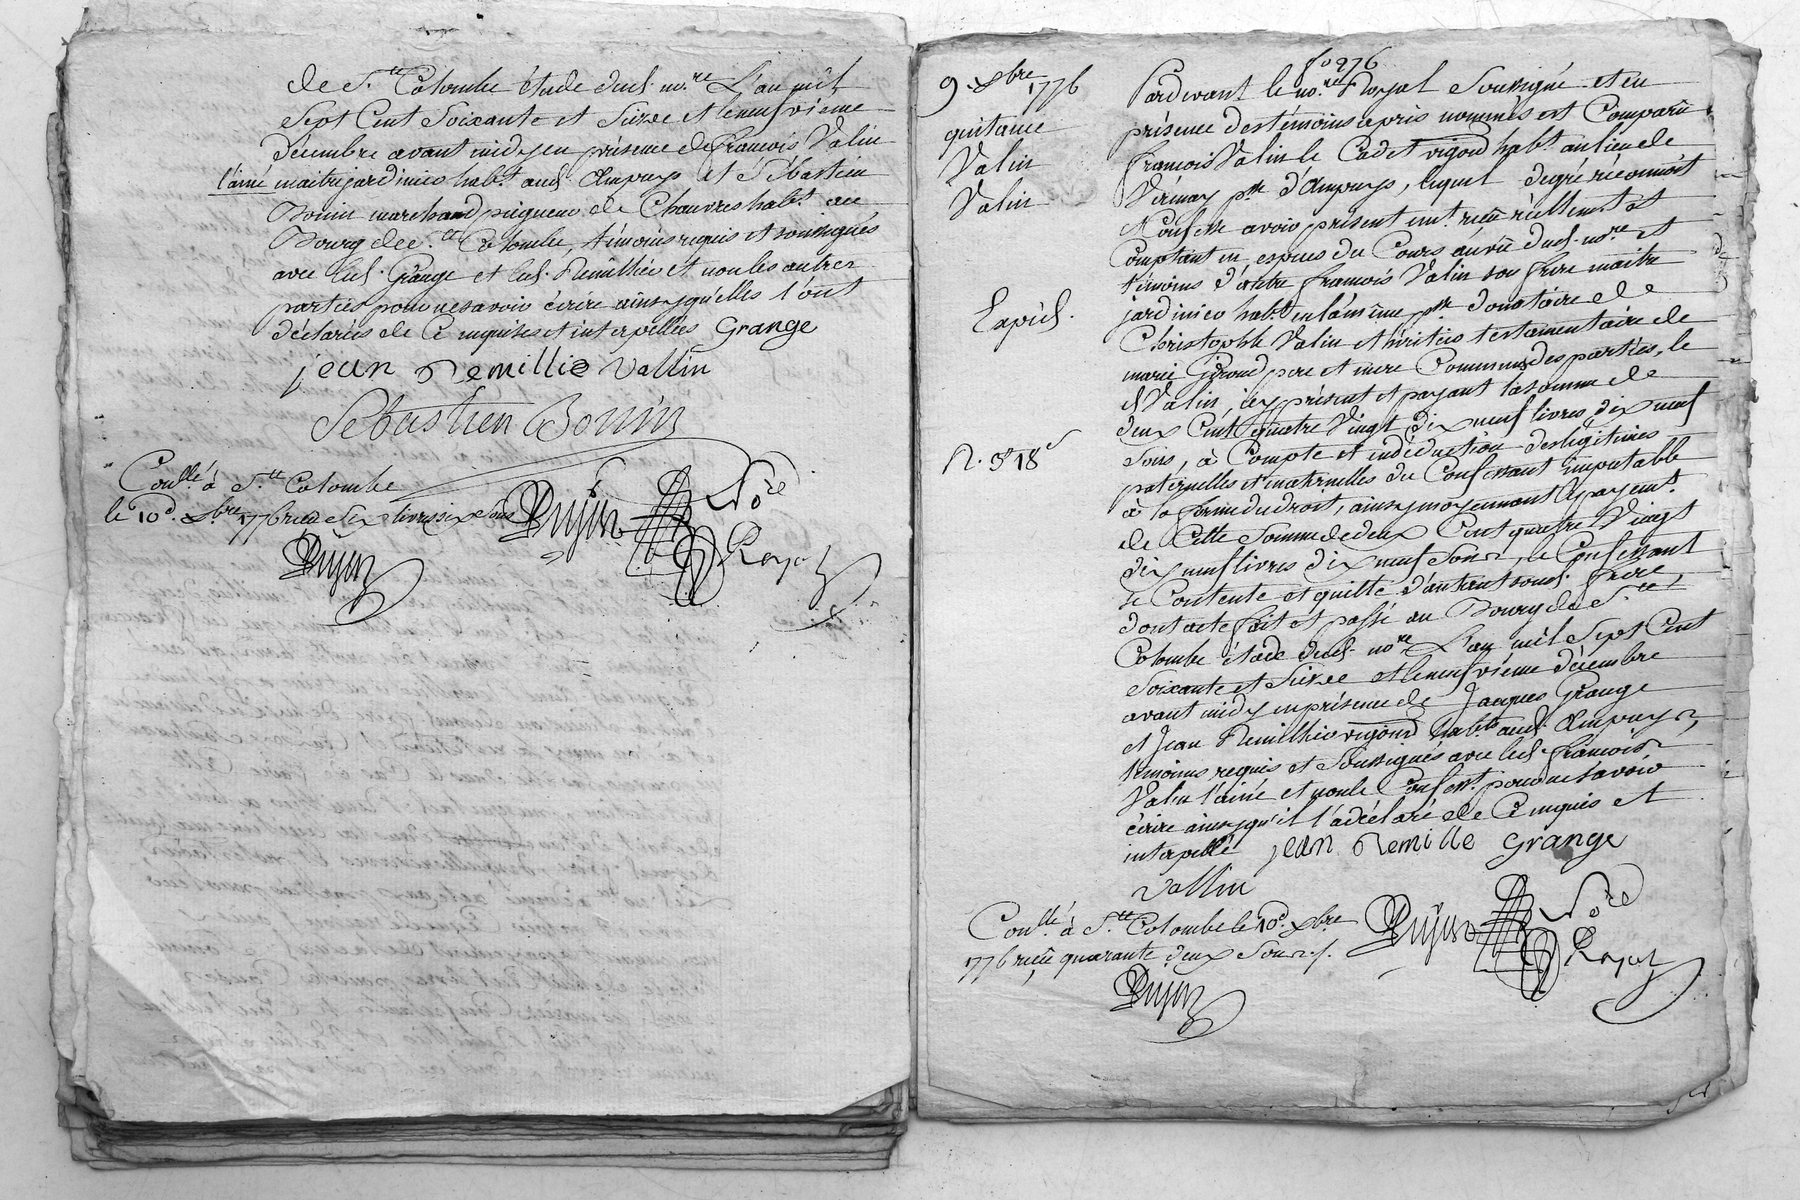 de S.te Colombe étude dud. no.re L'an mil
Sept Cent Soixante et Seize et le neufvième
Décembre avant midy en présence de francois Valin
l'ainé maitre jardinier habt. aud. Ampuys et Sébastien
Bonin marchand piqueur de Chanvres habt. au
Bourg de S.te Colombe, témoins requis et soussignés
avec led. Grange et led. Remillier et non les autres
parties pour ne savoir écrire ainsy qu'elles l'ont
déclarées de Ce enquises et interpellées Grange
jean Remillie vallin
Sebastien Bonin
Conllé à S.te Colombe
le 10d. Xbre 1776 reçu Six livres six sous
Dujon Nore
Royal
Dujon
fo 276
9. Xbre 1776
quitance
Valin
Valin
Expéd.
R. 3# 18s
Pardevant le no.re Royal Soussigné et en
présence des témoins après nommés est Comparu
francois Valin le Cadet vigond habt. au lieu de
Vérenay psse d'Ampuys, lequel de gré reconnoit
et Confesse avoir présentemt. reçu réellemt. et
Comptant en espèces du Cours au vû dud. no.re et
témoins d'autre francois Valin son frère maitre
jardinier habt. en la même psse donataire de
Christophle Valin et héritier testamentaire de
marie Giroud père et mère Communs des parties, le
d. Valin, icy présent et payant la somme de
deux Cent quatre Vingt dix neuf livres dix neuf
Sous, à Compte et en déduction des légitimes
paternelles et maternelles du Confessant imputable
à la forme du droit, ainsy moyennant le payemt.
de Cette Somme de deux Cent quatre Vingt
dix neuf livres dix neuf Sous, le Confessant
se Contente et quitte d'autant sond. frère,
dont acte fait et passé au Bourg de S.te
Colombe étude dud. no.re L'an mil Sept Cent
Soixante et Seize et le neufvième décembre
avant midy en présence de Jacques Grange
et Jean Remillier vigond habts. aud. Ampuys,
témoins requis et Soussignés avec led. francois
Valin l'ainé et non le Confesst. pour ne Savoir
écrire ainsy qu'il l'a déclaré de Ce enquis et
interpellé jean Remillie Grange
vallin
Conllé à S.te Colombe le 10d. Xbre
1776 reçu quarante deux Sous./.
Dujon Nore
Royal
Dujon